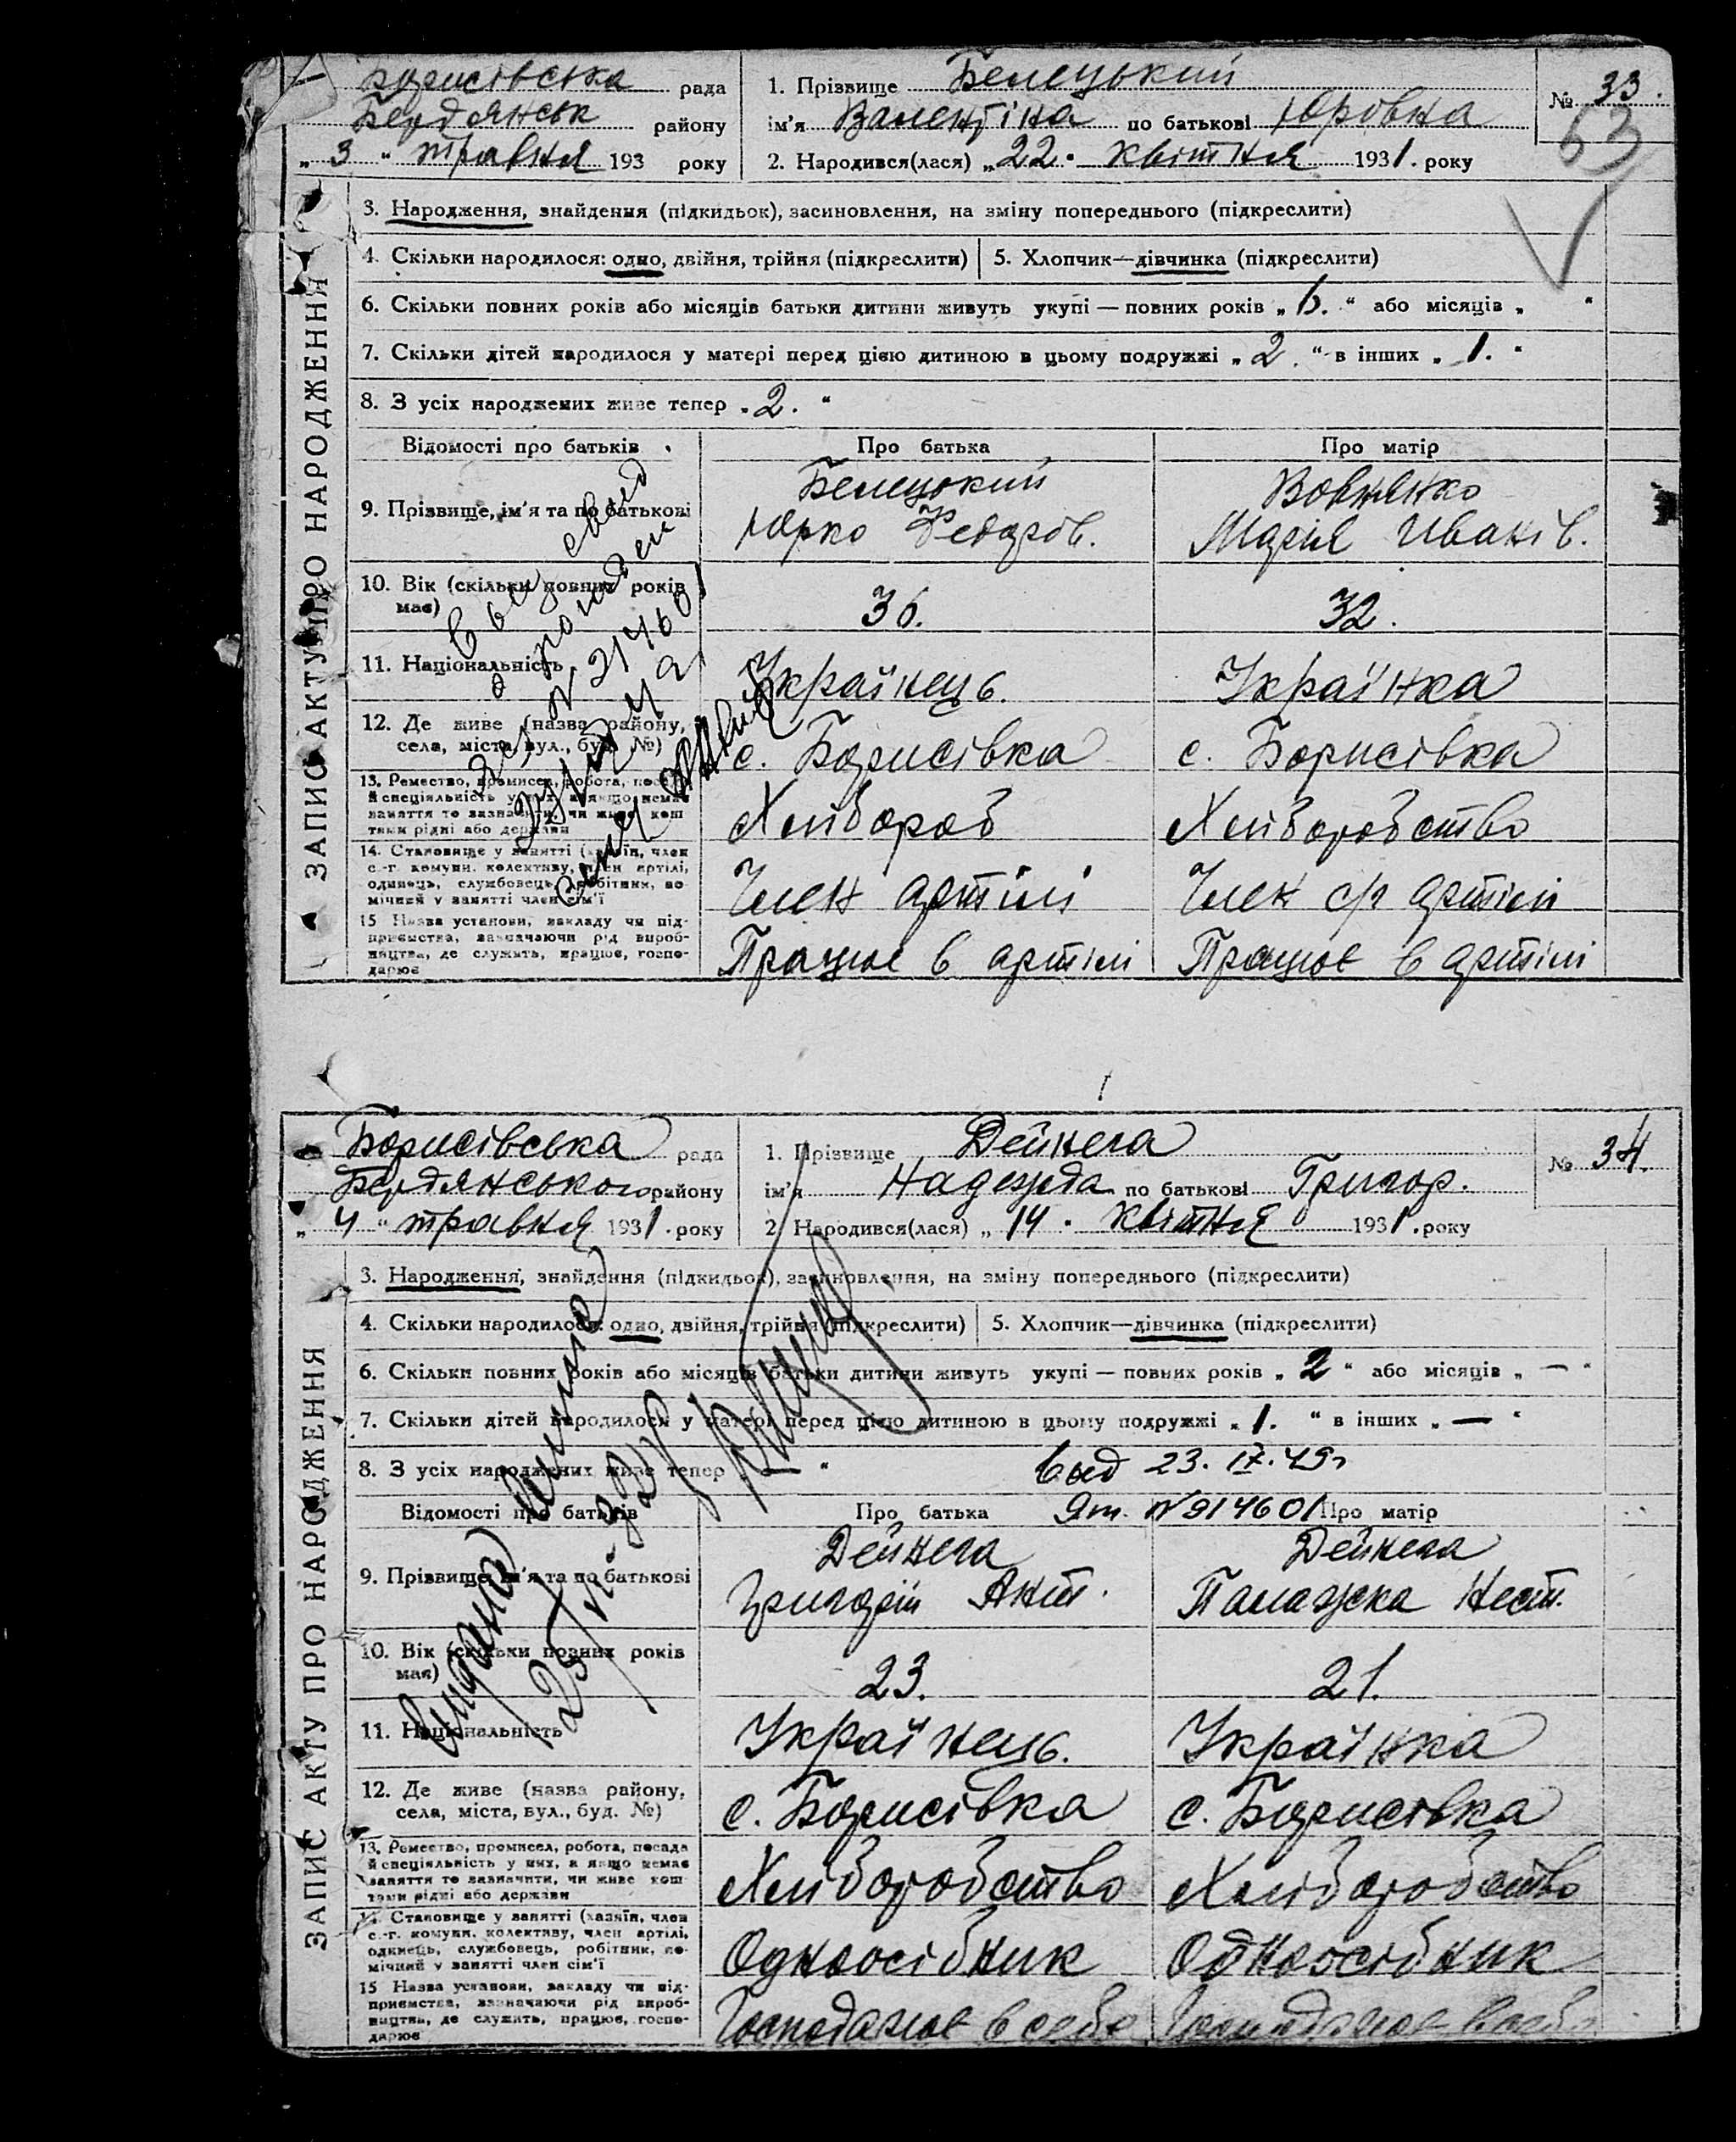 Борисівська рада
Бердянськ району
„ 3 “ травня 193 року
1. Прізвище Белецький
ім'я Валентіна по батькові Юровна
2. Народився(лася) „ 22 . квітня 1931. року
№ 33.
63
ЗАПИС АКТУ ПРО НАРОДЖЕННЯ
3. Народження, знайдення (підкидьок), засиновлення, на зміну попереднього (підкреслити)
4. Скільки народилося: одно, двійня, трійня (підкреслити) 5. Хлопчик—дівчинка (підкреслити)
6. Скільки повних років або місяців батьки дитини живуть укупі — повних років „ 6. “ або місяців „ “
7. Скільки дітей народилося у матері перед цією дитиною в цьому подружжі „ 2. “ в інших „ 1. “
8. З усіх народжених живе тепер „ 2. “
Відомості про батьків Про батька Про матір
9. Прізвище, ім'я та по батькові
Белецький
Юрко Федоров.
Вовнянко
Мария Иванів.
10. Вік (скільки повних років
має)
36. 32.
11. Національність Українець. Українка
12. Де живе (назва району,
села, міста, вул., буд. №)
с. Борисівка с. Борисівка
13. Ремество, промисел, робота, посада
й спеціяльність у них, а якщо немає
заняття то зазначити, чи живе кош
тами рідні або держави
Хлібороб Хліборобство
14. Становище у занятті (хазяїн, член
с.-г. комуни, колективу, член артілі,
одинець, службовець, робітник, по-
мічний у занятті член сім'ї
Член артілі Член с/г артілі
15 Назва установи, закладу чи під-
приємства, зазначаючи рід вироб-
ництва, де служить, працює, госпо-
дарює
Працює в артілі Працює в артілі
Борисівська рада
Бердянського району
„ 4 “ травня 1931. року
1. Прізвище Дейнега
ім'я Надежда по батькові Григор.
2. Народився(лася) „ 14 . квітня 1931. року
№ 34.
ЗАПИС АКТУ ПРО НАРОДЖЕННЯ
3. Народження, знайдення (підкидьок), засиновлення, на зміну попереднього (підкреслити)
4. Скільки народилося: одно, двійня, трійня (підкреслити) 5. Хлопчик—дівчинка (підкреслити)
6. Скільки повних років або місяців батьки дитини живуть укупі — повних років „ 2 “ або місяців „ — “
7. Скільки дітей народилося у матері перед цією дитиною в цьому подружжі „ 1. “ в інших „ — “
8. З усіх народжених живе тепер „ — “
выд 23. IX. 49г
Ят. №914601
Відомості про батьків Про батька Про матір
9. Прізвище, ім'я та по батькові
Дейнега
Григорій Ант.
Дейнега
Палажка Нест.
10. Вік (скільки повних років
має)
23. 21.
11. Національність Українець. Українка
12. Де живе (назва району,
села, міста, вул., буд. №)
с. Борисівка с. Борисівка
13. Ремество, промисел, робота, посада
й спеціяльність у них, а якщо немає
заняття то зазначити, чи живе кош
тами рідні або держави
Хліборобство Хліборобство
14. Становище у занятті (хазяїн, член
с.-г. комуни, колективу, член артілі,
одинець, службовець, робітник, по-
мічний у занятті член сім'ї
Одноосібник Одноосібник
15 Назва установи, закладу чи під-
приємства, зазначаючи рід вироб-
ництва, де служить, працює, госпо-
дарює
Господарює в себе Господарює в себе